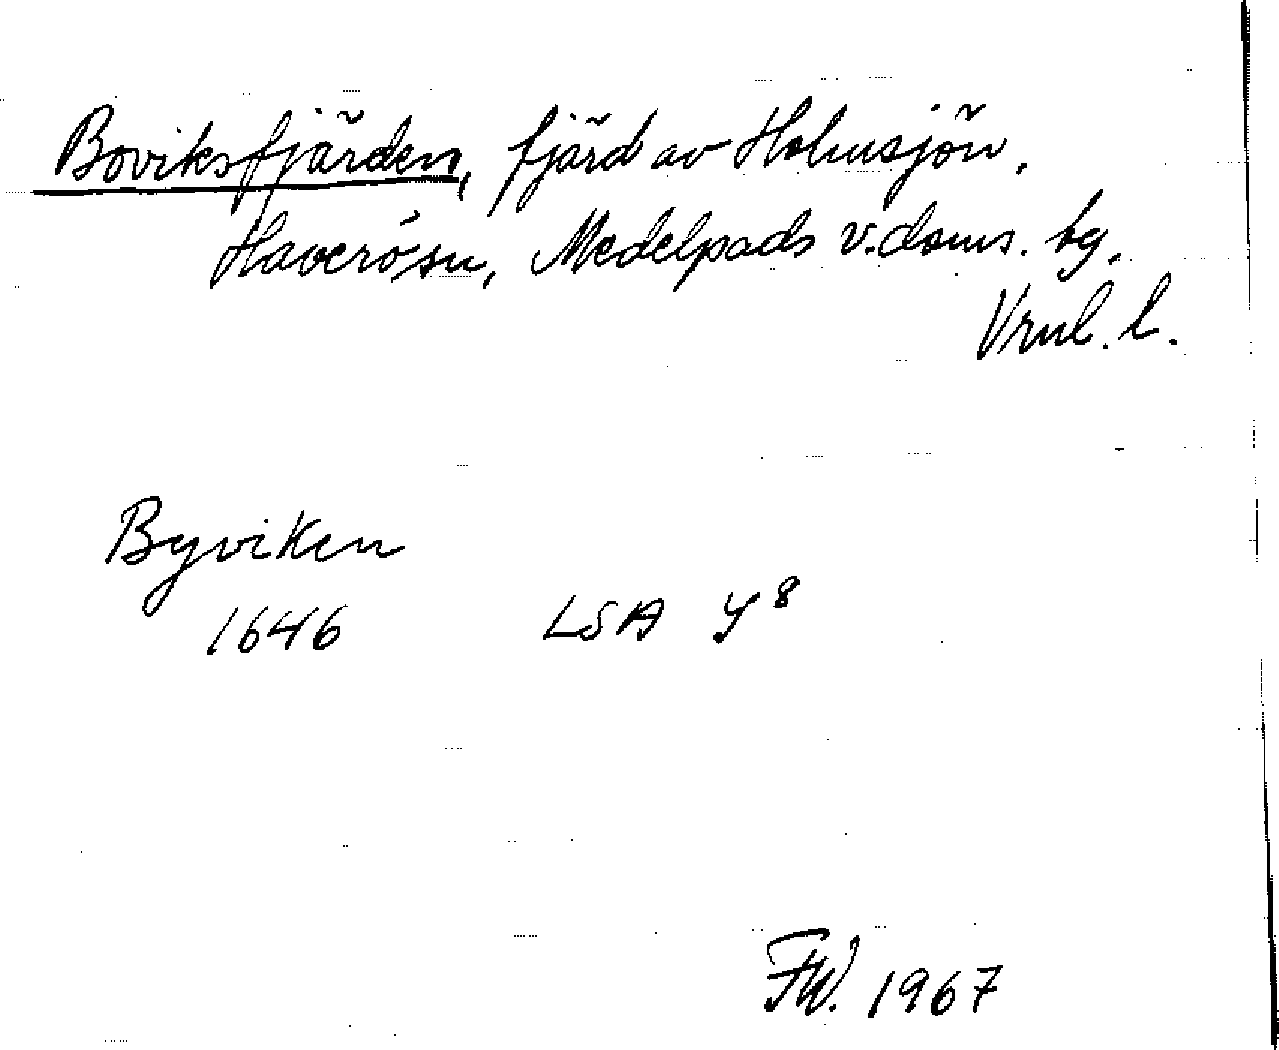 Boviksfjärden, fjärd av Holmsjön.
Haverö sn, Medelpads v. doms. tg.
Vrnl. l.
Byviken
1646 LSA Y 8
FW. 1967